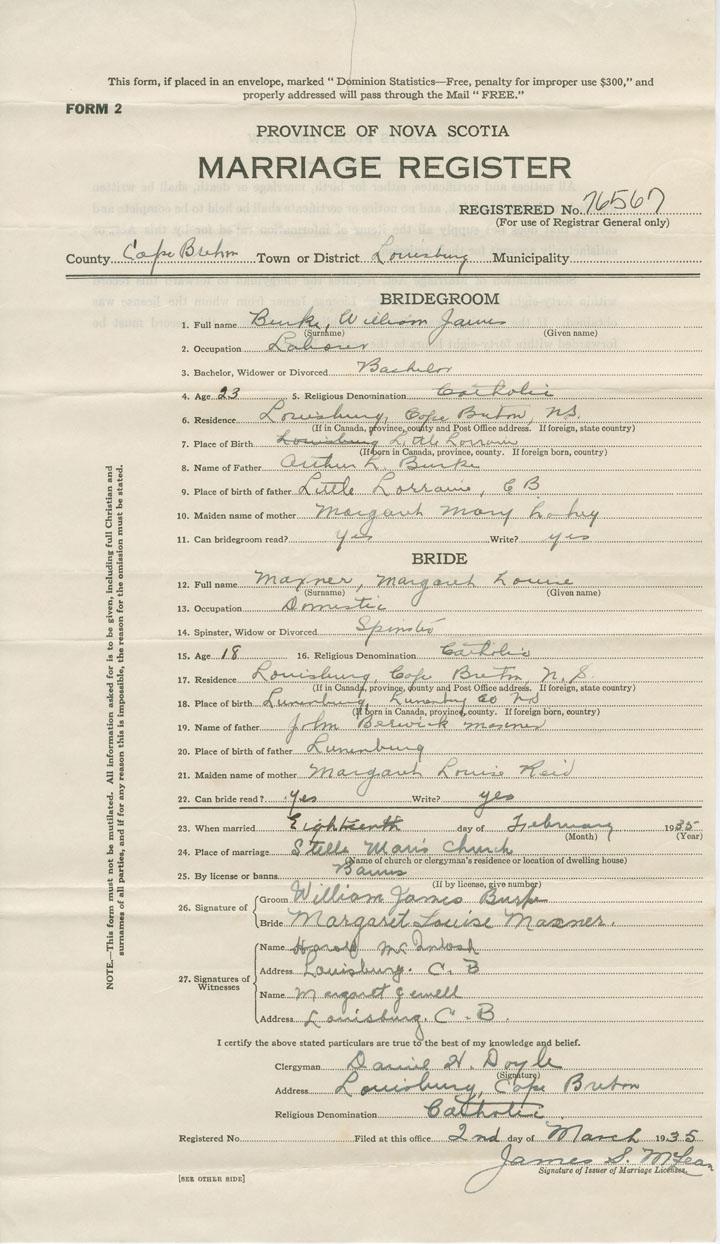 This form, if placed in an envelope, marked "Dominion Statistics—Free, penalty for improper use $300," and
properly addressed will pass through the Mail "FREE."
FORM 2
PROVINCE OF NOVA SCOTIA
MARRIAGE REGISTER
REGISTERED No. 76567
(For use of Registrar General only)
County Cape Breton Town or District Louisburg Municipality
BRIDEGROOM
1. Full name Burke, William James
(Surname) (Given name)
2. Occupation Laborer
3. Bachelor, Widower or Divorced Bachelor
4. Age 23 5. Religious Denomination Catholic
6. Residence Louisburg, Cape Breton, N.S.
(If in Canada, province, county and Post Office address. If foreign, state country)
7. Place of Birth Louisburg Little Lorraine
(If born in Canada, province, county. If foreign born, country)
8. Name of Father Arthur L. Burke
9. Place of birth of father Little Lorraine, CB
10. Maiden name of mother Margaret Mary Lahey
11. Can bridegroom read? yes Write? yes
BRIDE
12. Full name Maxner, Margaret Louise
(Surname) (Given name)
13. Occupation Domestic
14. Spinster, Widow or Divorced Spinster
15. Age 18 16. Religious Denomination Catholic
17. Residence Louisburg, Cape Breton, N.S.
(If in Canada, province, county and Post Office address. If foreign, state country)
18. Place of birth Lunenburg, Lunenburg Co NS
(If born in Canada, province, county. If foreign born, country)
19. Name of father John Berwick Maxner
20. Place of birth of father Lunenburg
21. Maiden name of mother Margaret Louise Reid
22. Can bride read? Yes Write? yes
23. When married Eighteenth day of February 1935
(Month) (Year)
24. Place of marriage Stella Maris Church
(Name of church or clergyman's residence or location of dwelling house)
25. By license or banns Banns
(If by license, give number)
26. Signature of
Groom William James Burke
Bride Margaret Louise Maxner.
27. Signatures of
Witnesses
Name Harold McIntosh
Address Louisburg. C. B
Name Margaret Jewell
Address Louisburg. C. B.
I certify the above stated particulars are true to the best of my knowledge and belief.
Clergyman Daniel H. Doyle
(Signature)
Address Louisburg, Cape Breton
Religious Denomination Catholic.
Registered No. Filed at this office 2nd day of March 1935
James S. McLean
Signature of Issuer of Marriage Licenses.
[SEE OTHER SIDE]
NOTE.—This form must not be mutilated. All information asked for is to be given, including full Christian and
surnames of all parties, and if for any reason this is impossible, the reason for the omission must be stated.